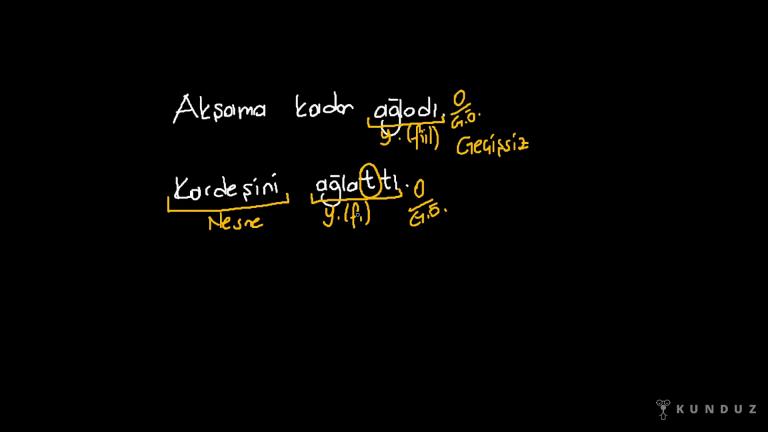 Akşama kadar ağladı. O
G.Ö.
y. (fiil) Geçişsiz
Kardeşini ağlattı. O
Nesne y. (fi) G.Ö.
KUNDUZ